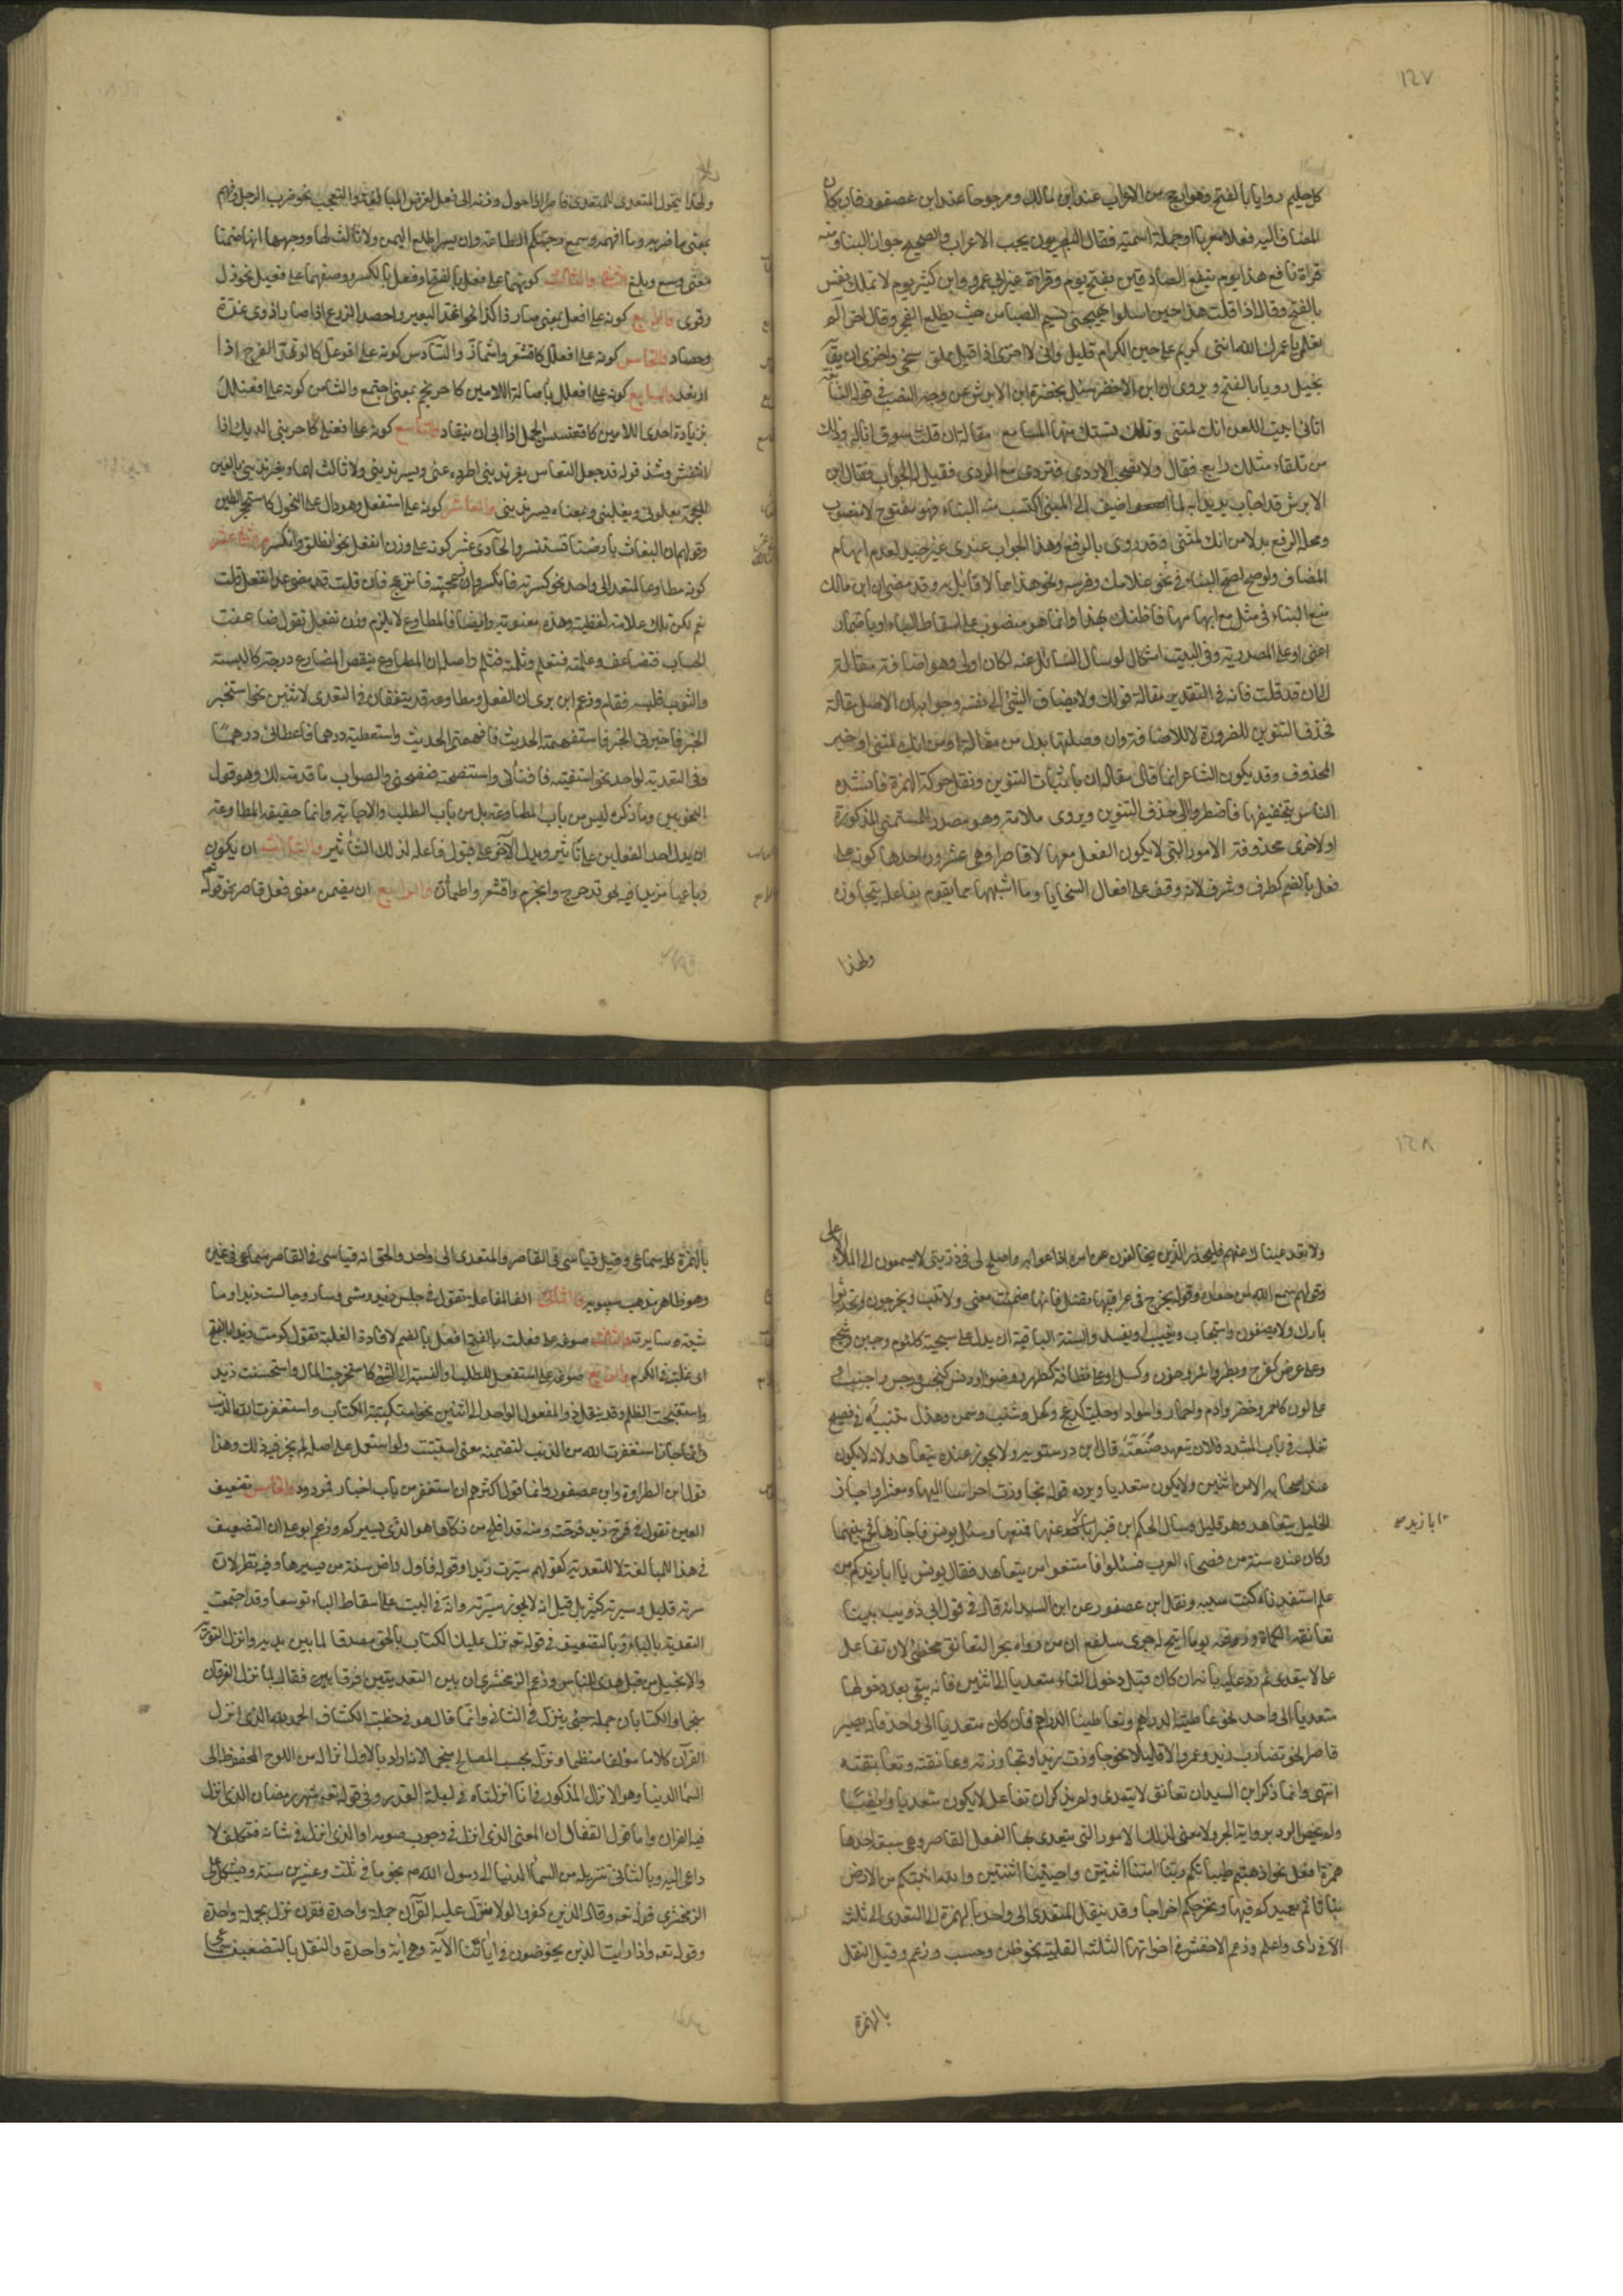 ١٤٧
كل حليم روايا بالفتح وهو ارجح من الاعراب عند ابن مالك ومرجوحا عند ابن عصفور فان كان
المضاف اليه فعلا معربا او جملة اسمية فقال البصريون يجب الاعراب والصحيح جواز البناء ومنه
قراءة نافع هذا يوم ينفع الصادقين بفتح يوم وقراءة غير ابي عمرو وابن كثير يوم لا تملك نفس
بالفتح وقال اذا قلت هذا حين اسلوا يهيجني نسيم الصبا من حيث يطلع الفجر وقال اخر الم
تعلمي يا عمرك الله انني كريم على حين الكرام قليل واني لا اخزى اذا قيل مملق سخي واخزى ان يقال
بخيل رويا بالفتح ويروى ان ابن الاخضر سئل بحضرة ابن الابرش عن وجه النصب في قول النابغة
اتاني ابيت اللعن انك لمتني وتلك تستك منها المسامع مقالة ان قلت سوف اناله وذلك
من تلقاء مثلك رابع فقال ولا تصحب الاردى فتردى مع الردى فقيل له الجواب فقال ابن
الابرش قد اجاب يريد انه لما اضيف الى المبني اكتسب منه البناء فهو مفتوح لا منصوب
ومحله الرفع بدلا من انك لمتني وقد روى بالرفع وهذا الجواب عندي غير جيد لعدم ابهام
المضاف ولو صح لصح البناء في نحو غلامك وفرسه ونحو هذا مما لا قائل به وقد مضى ان ابن مالك
منع البناء في مثل مع ابهامها فما ظنك بهذا وانما هو منصوب على اسقاط الباء او باضمار
اعني او على المصدرية وفي البيت اشكال لو سال السائل عنه لكان اولى وهو اضافة مقالة
الى ان قد قلت فانه في التقدير مقالة قولك ولا يضاف الشيء الى نفسه وجوابه ان الاصل مقالة
فحذف التنوين للضرورة لا للاضافة وان وصلتها بدل من مقالة او من انك لمتني او خبر
لمحذوف وقد يكون الشاعر انما قال مقالة ان باثبات التنوين ونقل حركة الهمزة فانشده
الناس بتحقيقها فاضطروا الى حذف التنوين ويروى ملامة وهو مصدر للمتني المذكورة
او لاخرى محذوفة الامور التي لا يكون الفعل معها الا قاصرا وهي عشرون احدها كونه على
فعل بالضم كظرف وشرف لانه وقف على افعال السجايا وما اشبهها مما يقوم بفاعله ولا يتجاوزه
ولهذا
ولهذا يتحول المتعدى قاصرا اذا حول وزنه الى فعل لغرض المبالغة والتعجب نحو ضرب الرجل وفهم
بمعنى ما اضربه وما افهمه وسمع رحبتكم الطاعة وان بسرا طلع اليمن ولا ثالث لهما ووجههما انهما ضمنا
معنى وسع وبلغ والثاني والثالث كونهما على فعل بالفتح او فعل بالكسر ووصفهما على فعيل نحو ذل
وقوى والرابع كونه على افعل بمعنى صار ذا كذا نحو اغد البعير واحصد الزرع اذا صارا ذوى غدة
وحصاد والخامس كونه على افعلل كاقشعر واشمأز والسادس كونه على افوعل كاكوهد الفرخ اذا
ارتعد والسابع كونه على افعنلل باصالة اللامين كاحرنجم بمعنى اجتمع والثامن كونه على افعنلل
بزيادة احدى اللامين كاقعنسس الجمل اذا ابى ان ينقاد والتاسع كونه على افعنلى كاحرنبى الديك اذا
انتفش وشذ قوله قد جعل النعاس يغرنديني اطرده عني ويسرنديني ولا ثالث لهما ويغرنديني بالغين
المعجمة يعلوني ويغلبني وبمعناه يسرنديني والعاشر كونه على استفعل وهو دال على التحول كاستحجر الطين
وقولهم ان البغاث بارضنا تستنسر والحادي عشر كونه على وزن انفعل نحو انطلق وانكسر والثاني عشر
كونه مطاوعا لمتعد الى واحد نحو كسرته فانكسر وازعجته فانزعج فان قلت قد مضى عد انفعل قلت
نعم لكن تلك علامة لفظية وهذه معنوية وايضا فالمطاوع لا يلزم وزن انفعل تقول ضاعفت
الحساب فتضاعف وعلمته فتعلم وثلمته فتثلم واصله ان المطاوع ينقص عن المطاوع درجة كالبسته
والثوب فلبسه واقامه فقام وزعم ابن برى ان الفعل ومطاوعه قد يتفقان في التعدى لاثنين نحو استخبرته
الخبر فاخبرني الخبر واستفهمته الحديث فافهمني الحديث واستعطيته درهما فاعطاني درهما
وفي التعدية لواحد نحو استفتيته فافتاني واستنصحته فنصحني والصواب ما قدمته لك وهو قول
النحويين وما ذكره ليس من باب المطاوعة بل من باب الطلب والاجابة وانما حقيقة المطاوعة
ان يدل احد الفعلين على تاثير ويدل الآخر على قبول فاعله لذلك التاثير والثالث عشر ان يكون
رباعيا مزيدا فيه نحو تدحرج واحرنجم واقشعر واطمأن والرابع ان يضمن معنى فعل قاصر نحو قوله
١٤٨
ولا تعد عيناك عنهم فليحذر الذين يخالفون عن امره اذاعوا به واصلح لى في ذريتى لا يسمعون الى الملأ الاعلى
وقولهم سمع الله لمن حمده وقوله يجرح في عراقيبها نصلى فانها ضمنت معنى ولا تنب ويخرجون وتحدثوا
وبارك ولا يصغون واستجاب ويعيث او يفسد والستة الباقية ان يدل على سجية كلؤم وجبن وشجع
وعلى عرض كفرح وبطر واشر وحزن وكسل او على نظافة كطهر ووضوء او دنس كنجس ورجس واجنب او
على لون كاحمر واخضر وادم واحمار واسواد او حلية كدعج وكحل وشنب وسمن وهزل تنبيه في فصيح
ثعلب في باب المشدد فلان يتعهد ضيعته قال ابن درستويه ولا يجوز عنده يتعاهد لانه لا يكون
عند اصحابه الا من اثنين ولا يكون متعديا ويرده قوله تجاوزت احراسا اليها ومعشرا واجاز
الخليل يتعاهد وهو قليل وسال الحكم ابن قنبر ابا زيد عنها فمنعها وسئل يونس فاجازها فجمع بينهما
وكان عنده ستة من فصحاء العرب فسئلوا فامتنعوا من يتعاهد فقال يونس يا ابا زيد كم من
علم استفدناه كنت سببه ونقل ابن عصفور عن ابن السيد انه قال في قول ابي ذويب بينا
تعانقه الكماة وروغه يوما اتيح له جرى سلفع ان من رواه بجر التعانق مخطئ لان تفاعل
لا يتعدى ثم رد عليه بانه ان كان قبل دخول التاء متعديا الى اثنين فانه يبقى بعد دخولها
متعديا الى واحد نحو عاطيته الدراهم وتعاطينا الدراهم وان كان متعديا الى واحد فانه يصير
قاصرا نحو تضارب زيد وعمرو الا قليلا نحو جاوزت زيدا وتجاوزته وعانقته وتعانقته
انتهى وانما ذكر ابن السيد ان تعانق لا يتعدى ولم يذكر ان تفاعل لا يكون متعديا وايضا
ولم يخص الرد برواية الجر ولا معنى لذلك الامور التي يتعدى بها الفعل القاصر وهي سبعة احدها
همزة افعل نحو اذهبتم طيباتكم ربنا امتنا اثنتين واحييتنا اثنتين والله انبتكم من الارض
نباتا ثم يعيدكم فيها ويخرجكم اخراجا وقد ينقل المتعدى الى واحد بالهمزة الى التعدى الى ثلاثة
الا في راى واعلم وزعم الاخفش في اخواتها الثلثة القلبية نحو ظن وحسب وزعم وقيل النقل
ابا زيد صح
بالهمزة
بالهمزة كله سماعي وقيل قياسى في القاصر والمتعدى الى واحد والحق انه قياسى في القاصر سماعى في غيره
وهو ظاهر مذهب سيبويه والثاني الف المفاعلة تقول في جلس زيد ومشى وسار وجالست زيدا وما
شيته وسايرته والثالث صوغه على فعلت بالفتح افعل بالضم لافادة الغلبة تقول كرمت زيدا بالفتح
اى غلبته في الكرم والرابع صوغه على استفعل للطلب او النسبة الى الشيء كاستخرجت المال واستحسنت زيدا
واستقبحت الظلم وقد ينقل ذو المفعول الواحد الى اثنين نحو استكتبته الكتاب واستغفرت الله الذنب
وانما جاز استغفرت الله من الذنب لتضمنه معنى استتبت ولو استعمل على اصله لم يجز فيه ذلك وهذا
قول ابن الطراوة وابن عصفور واما قول اكثرهم ان استغفر من باب اختار فمردود والخامس تضعيف
العين تقول في فرح زيد فرحته ومنه قد افلح من زكاها هو الذي يسيركم وزعم ابو على ان التضعيف
في هذا للمبالغة لا للتعدية كقولهم سرت زيدا وقوله فاول راض سنة من يسيرها وفيه نظر لان
سرته قليل وسيرته كثير بل قيل انه لا يجوز سرته وانه في البيت على اسقاط الباء توسعا وقد اجتمعت
التعدية بالباء وبالتضعيف في قوله تعه نزل عليك الكتاب بالحق مصدقا لما بين يديه وانزل التورية
والانجيل من قبل هدى للناس وزعم الزمخشري ان بين التعديتين فرقا بين فقال لما نزل القرآن
منجما والكتابان جملة جئ بنزل في الاول وانزل في الثاني وانما قال هو في خطبة الكشاف الحمد لله الذي انزل
القرآن كلاما مؤلفا منظما ونزله بحسب المصالح منجما لانه اراد بالاول انزاله من اللوح المحفوظ الى
السماء الدنيا وهو الانزال المذكور في انا انزلناه في ليلة القدر وفي قوله تعه شهر رمضان الذي انزل
فيه القران واما قول القفال ان المعنى الذي انزل في وجوب صومه او الذي انزل في شانه فتكلف لا
داعى اليه وبالثاني تنزيله من السماء الدنيا الى رسول الله ص نجوما في ثلث وعشرين سنة ويشكل على
الزمخشري قوله تعه وقال الذين كفروا لولا نزل عليه القرآن جملة واحدة فقرن نزل بجملة واحدة
وقوله تعه واذا رايت الذين يخوضون في اياتنا الآية وهي آية واحدة والنقل بالتضعيف سماعي